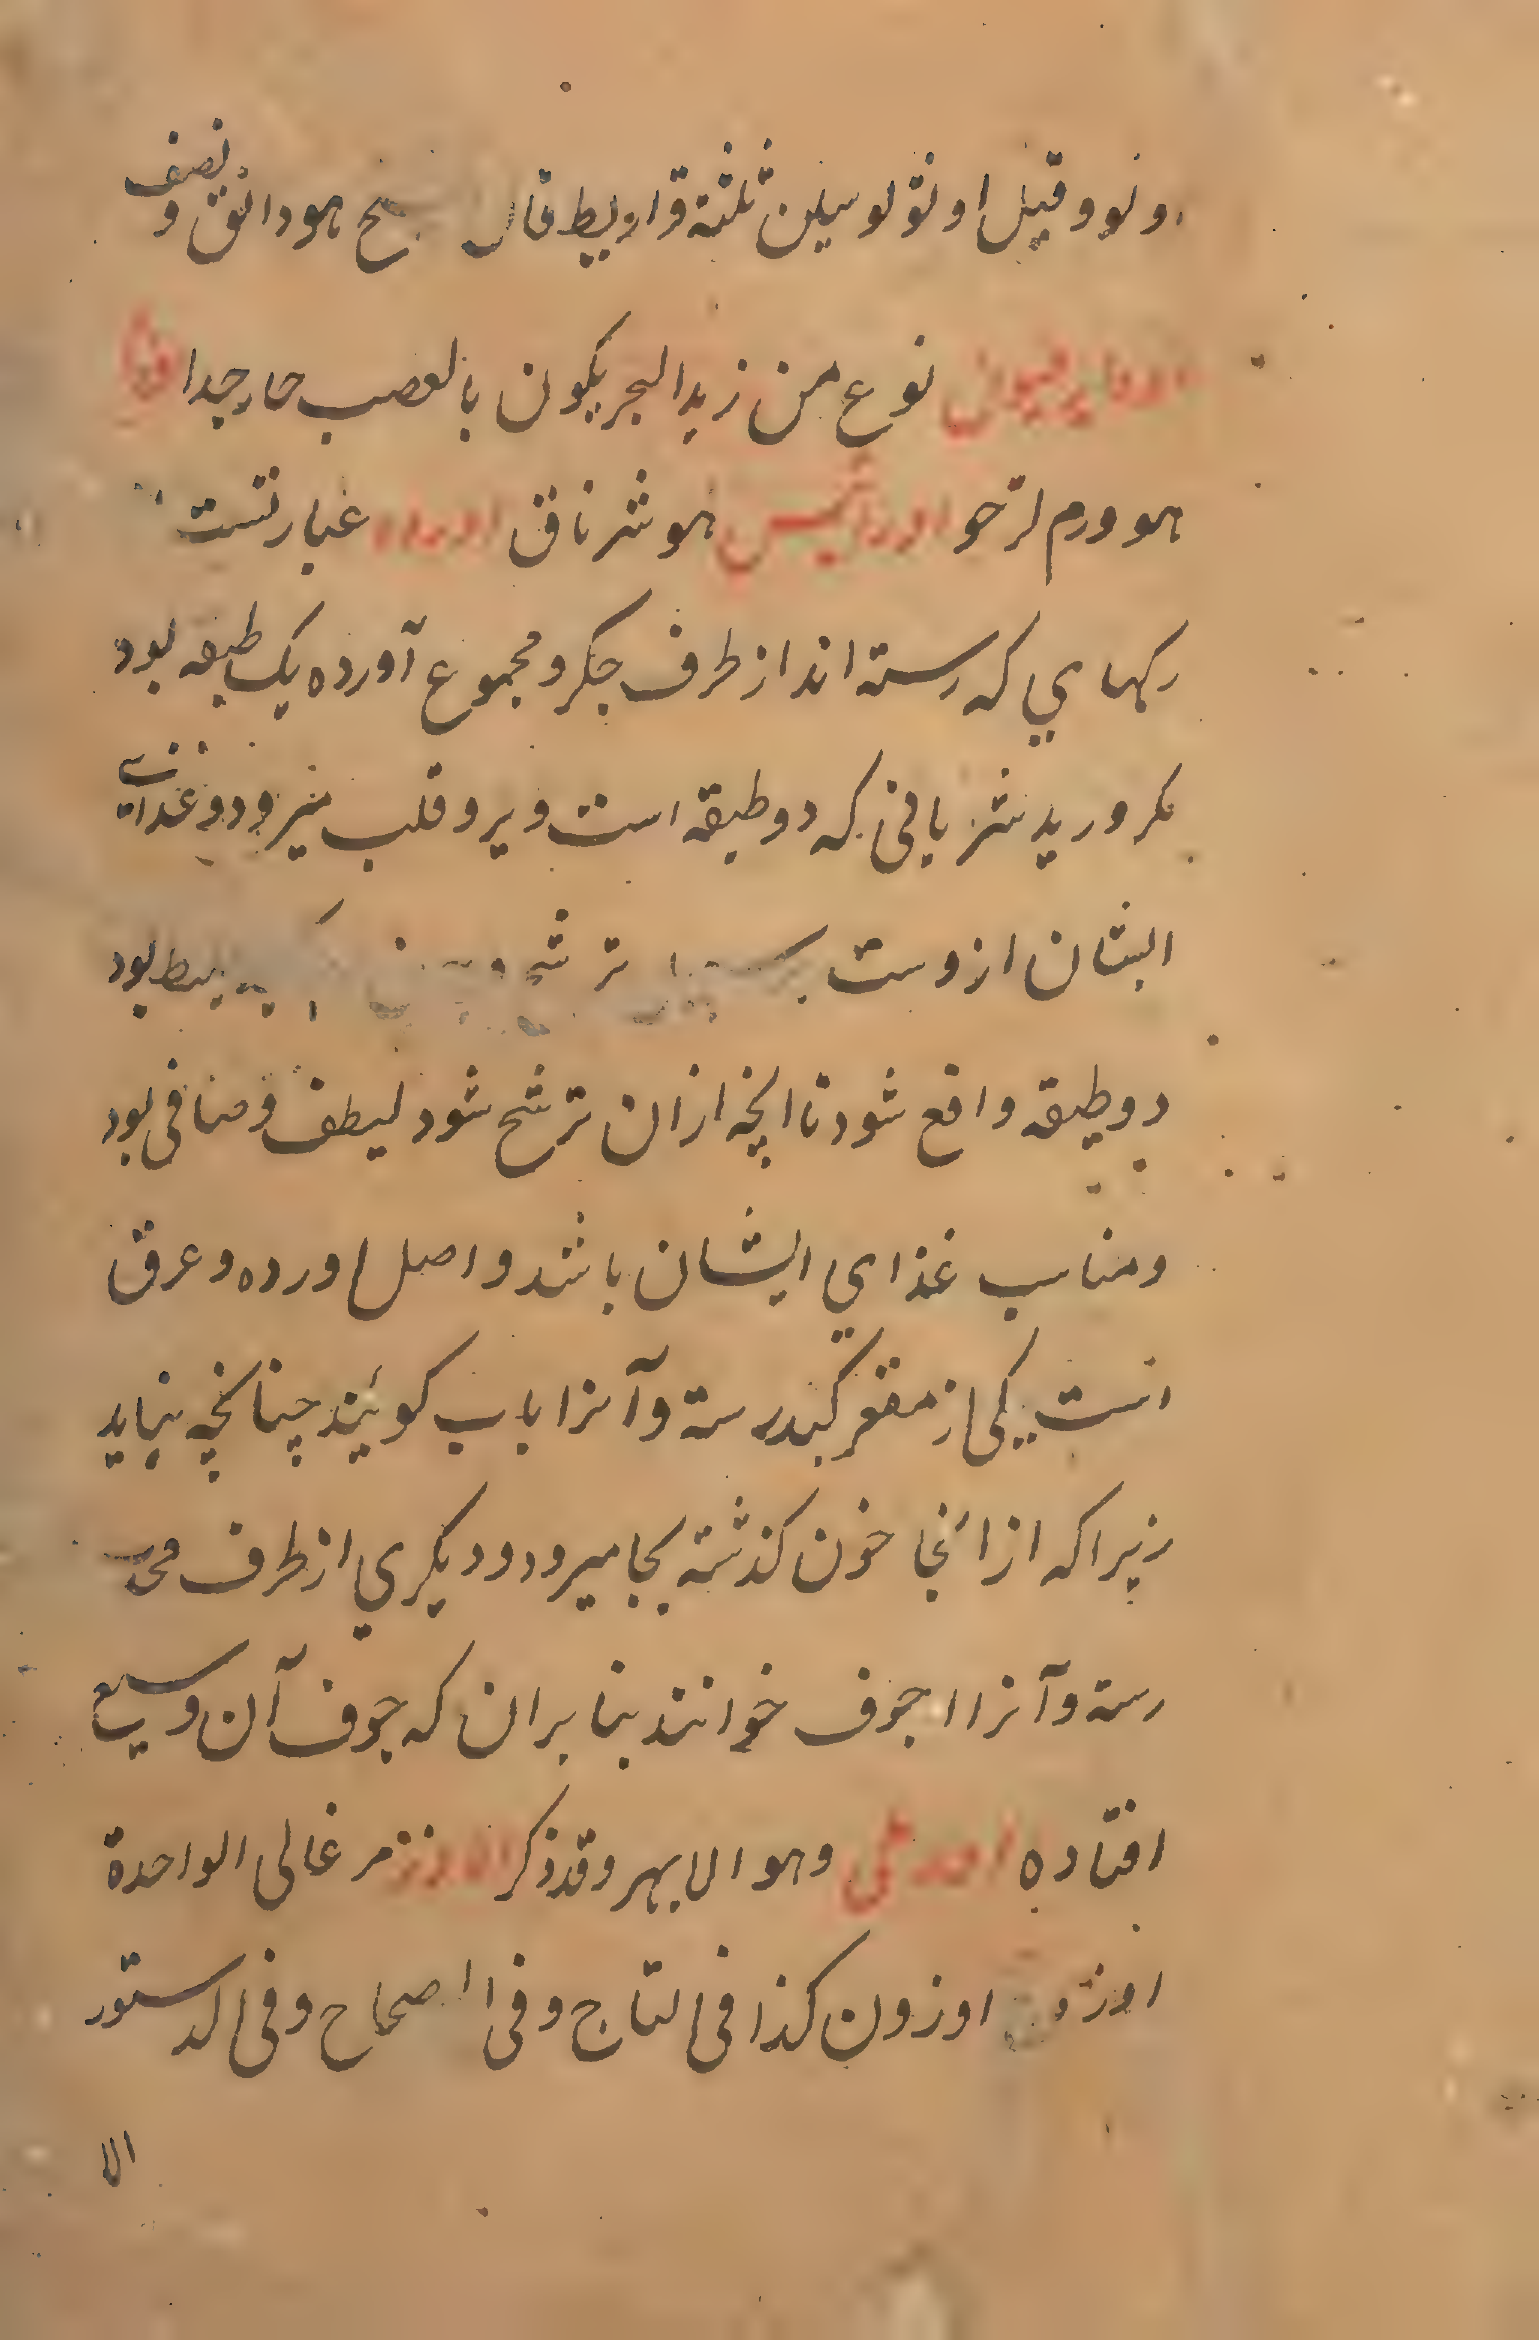 ونو وقیل اونولوسیلن ثلثة قراریط قال الشیخ هو دانق ونصف
نوع من زبد البحر یکون بالقصب حار جدا
هو ورم رخو هو شرناق اورده عبارتست
رکهاي که رسته اند از طرف جکر و مجموع آورده یک طبقه بود
مکر ورید شریانی که دو طبقه است و برو قلب میرود و غذای
ایشان ازوست ترشح بود
دو طبقه واقع شود تا انچه ازان ترشح شود لطیف و صافی بود
و مناسب غذاي ایشان باشد و اصل اورده و عرق
است یکی از مقعر کبد رسته و آنرا باب کویند چنانچه بباید
زیرا که از انجا خون کذشته بجا میرود و دیکري از طرف محدب
رسته و آنرا اجوف خوانند بنا بران که جوف آن وسیع
افتاده اورطی وهو الابهر وقد ذکر الاوز مرغابی الواحدة
اوزة اوزون کذا فی التاج وفی الصحاح وفی الدستور
الا